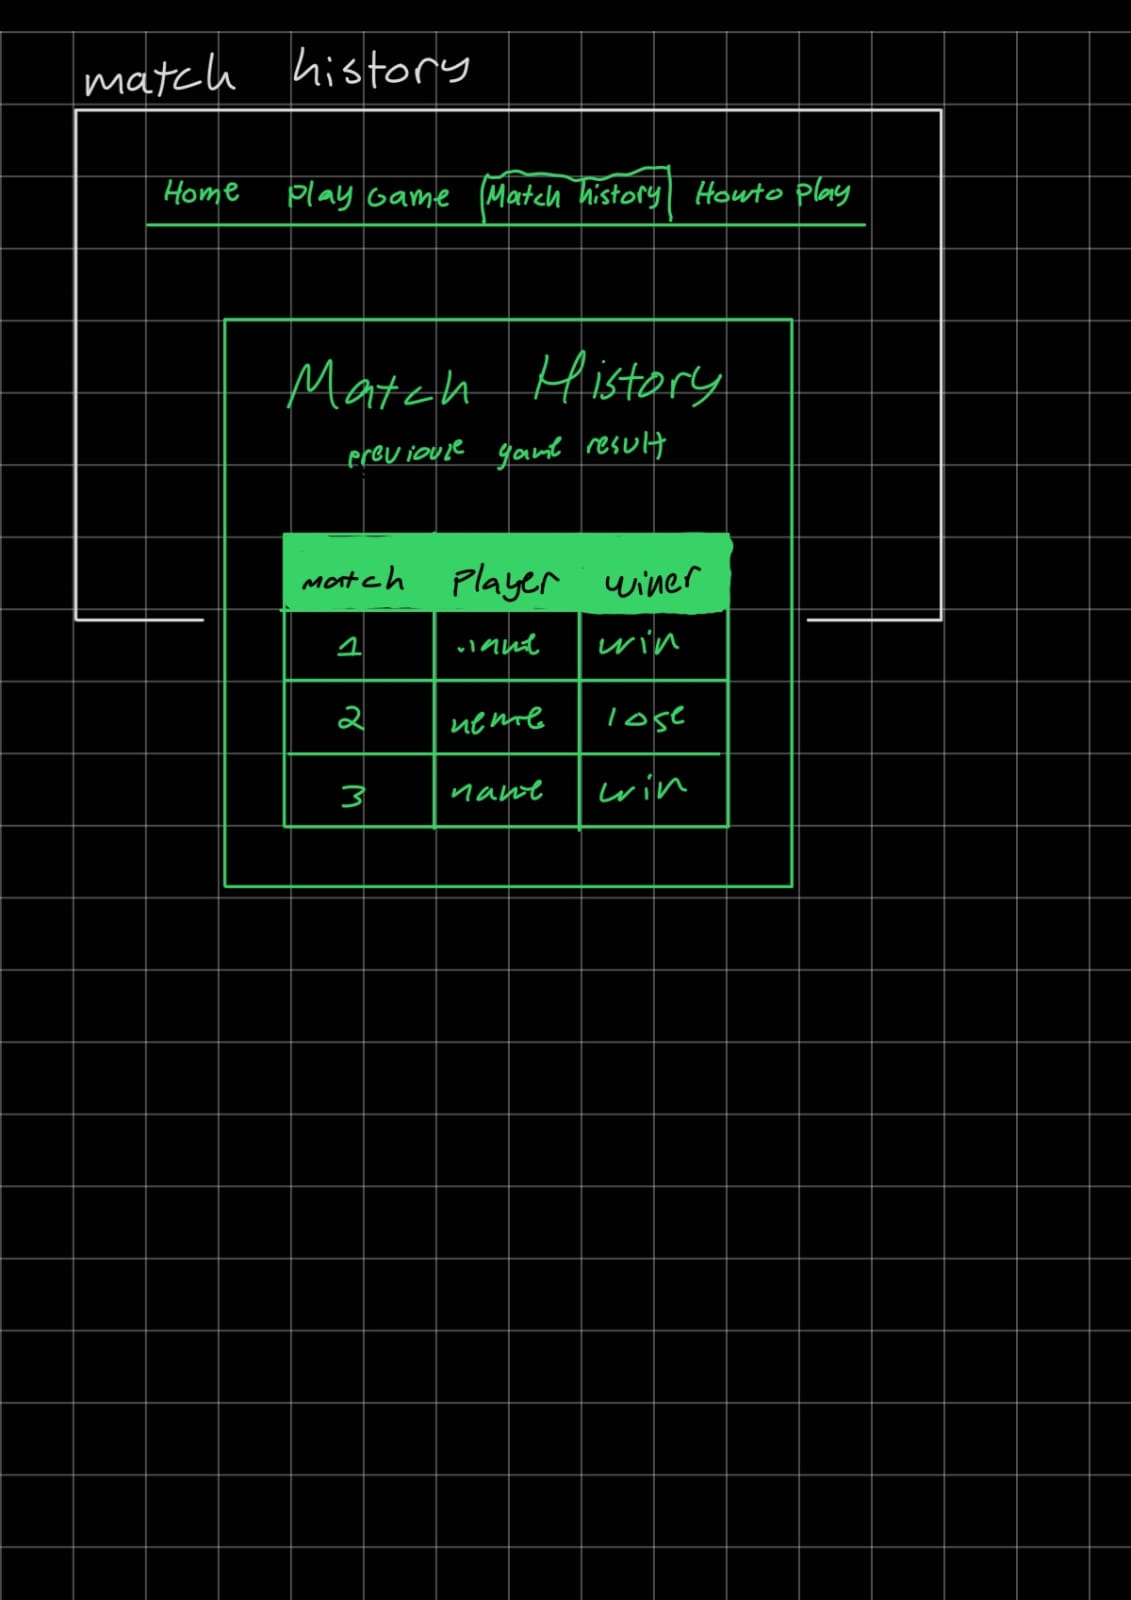 match history
Home Play Game Match history How to Play
Match History
game result
match Player winer
1 win
2 lose
3 name win